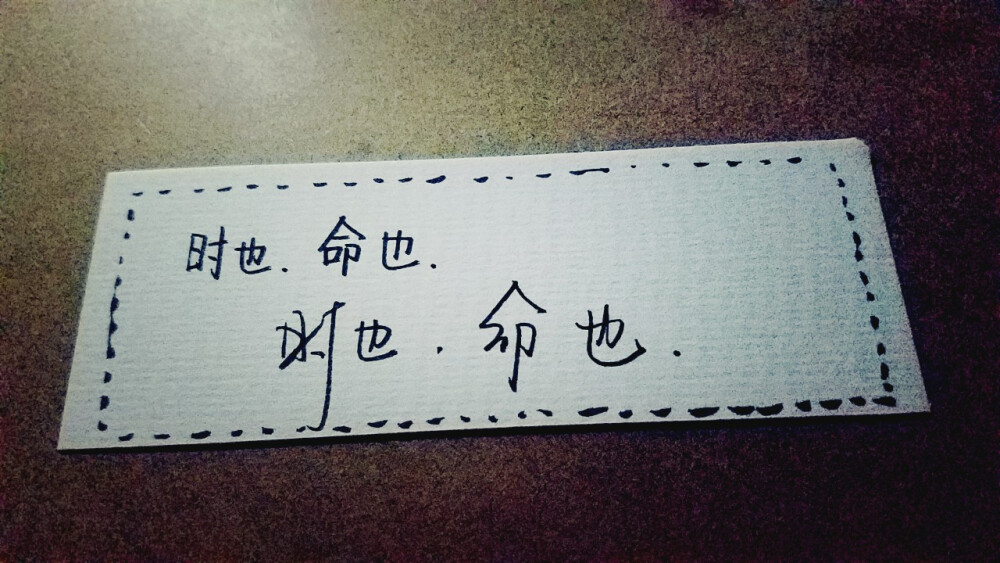 时也.命也.
时也.命也.